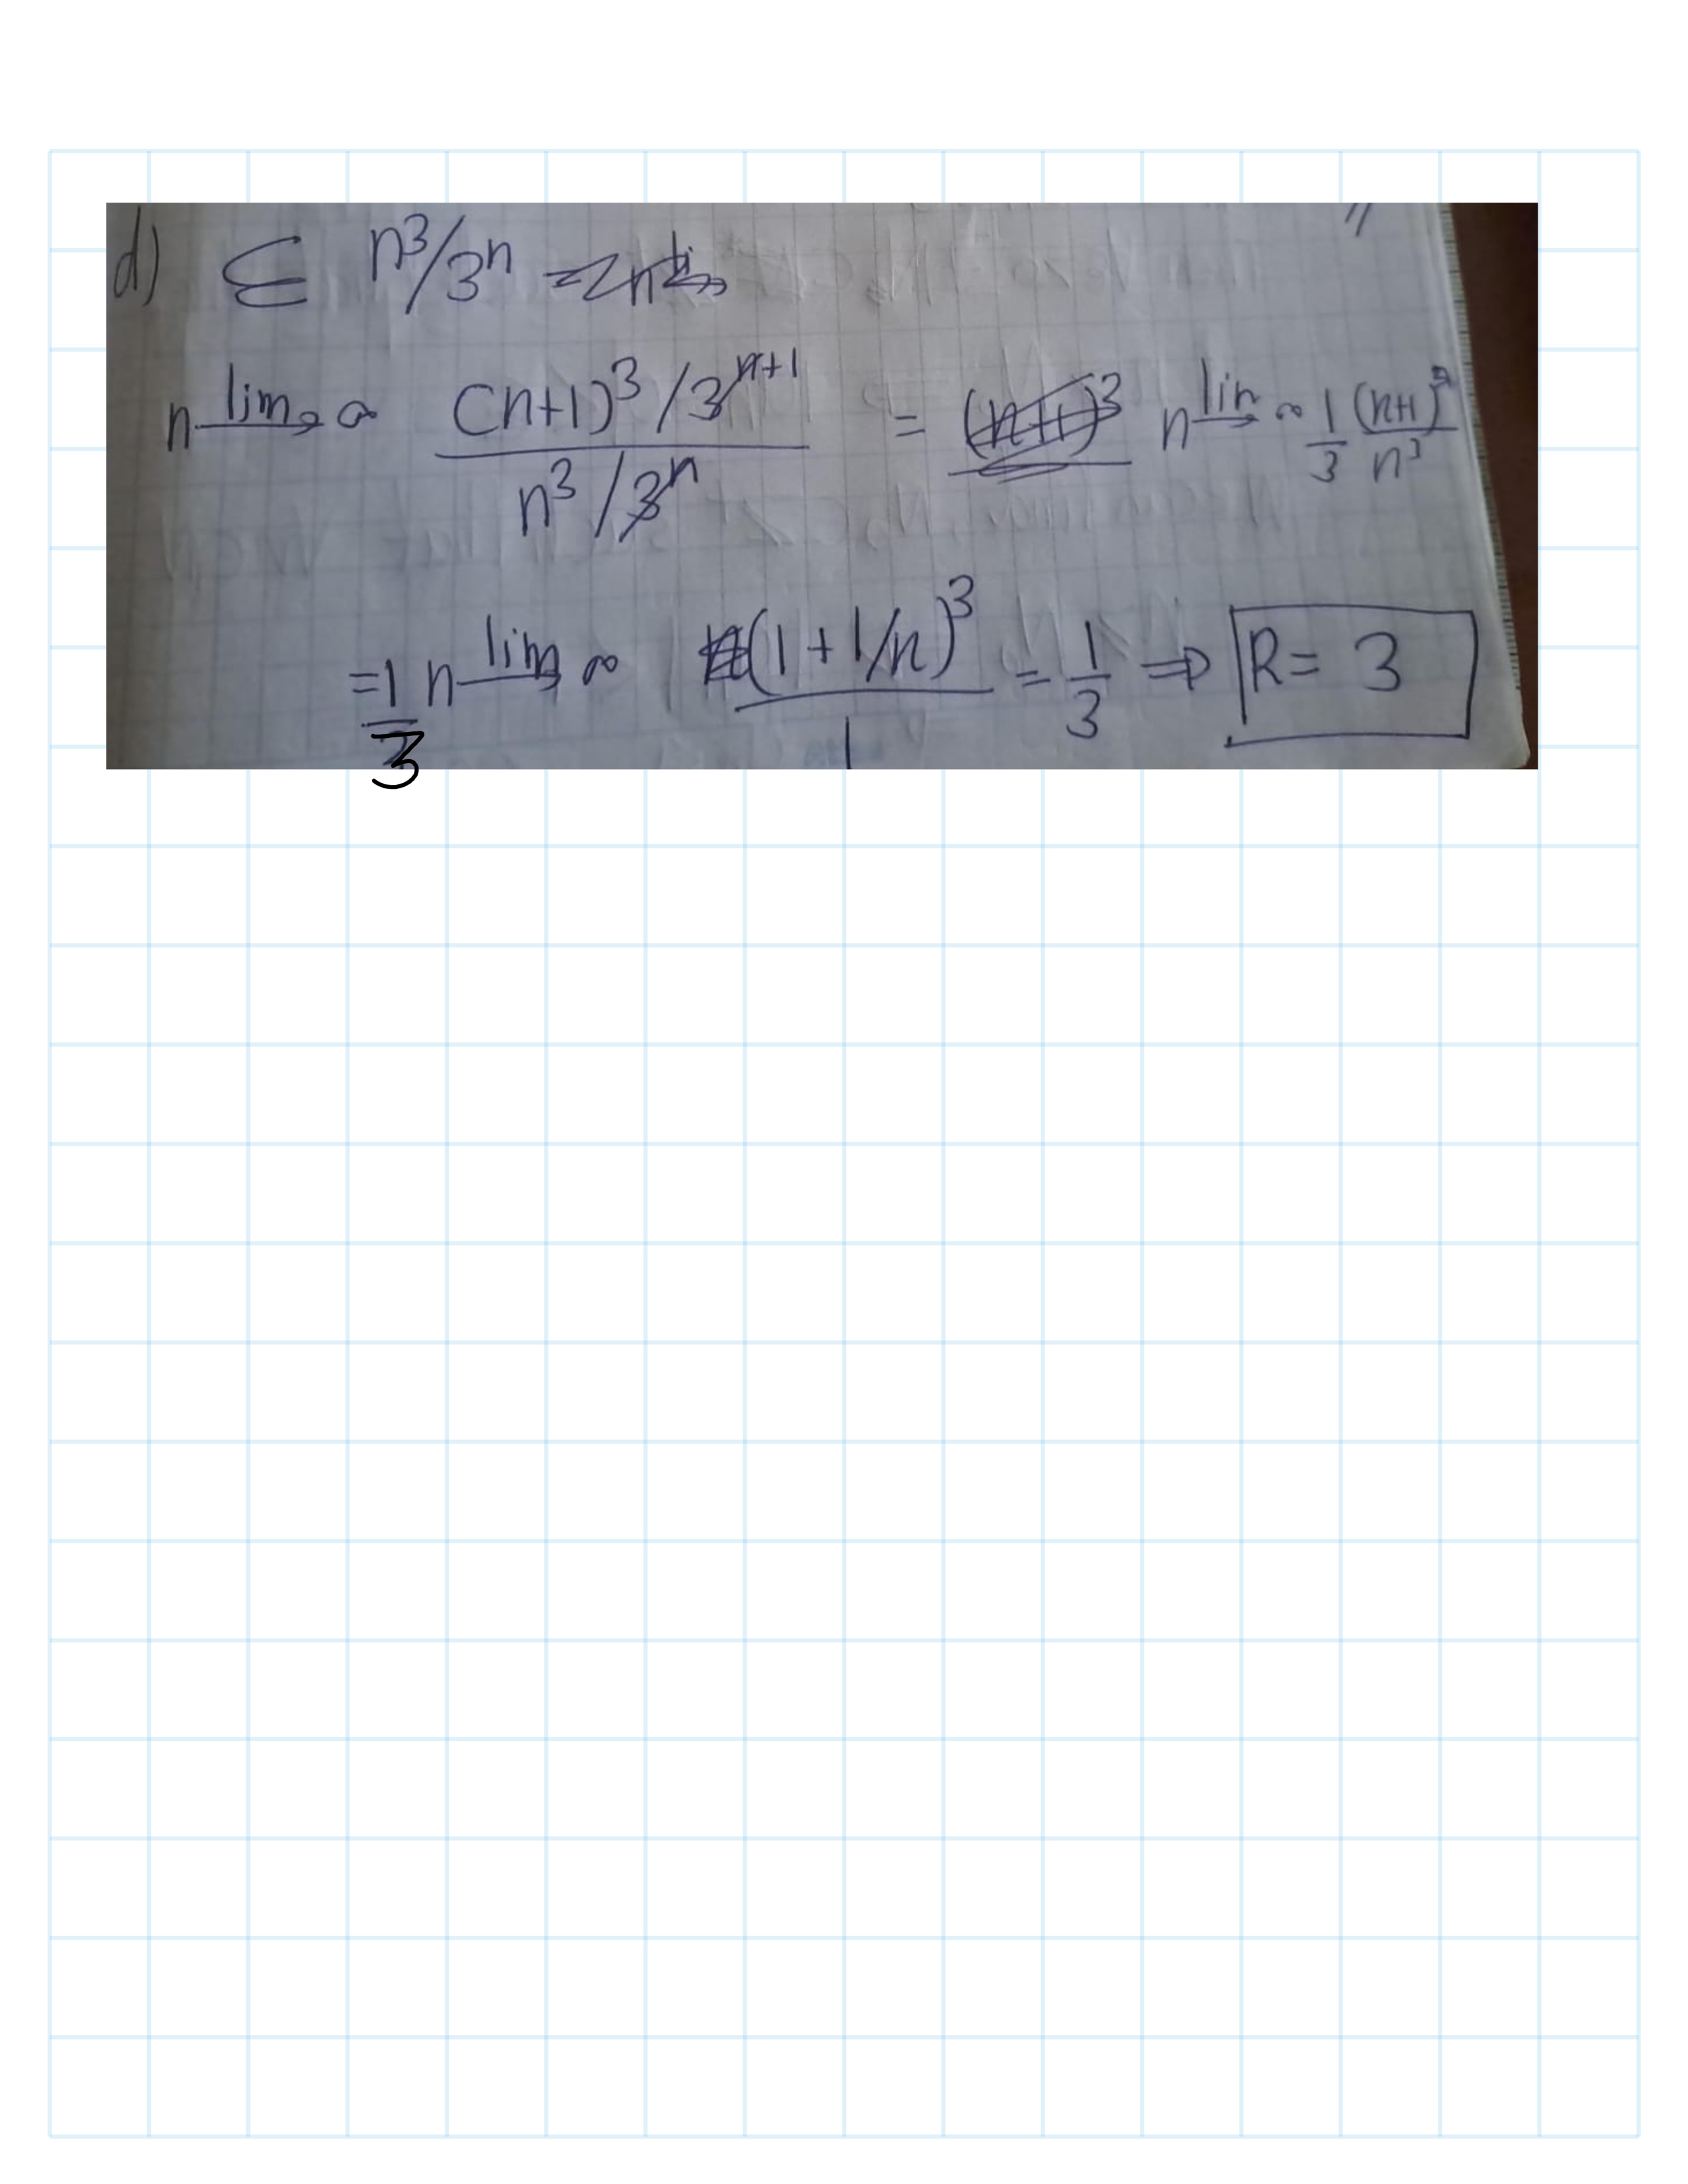 d) Σ n³/3ⁿ
n lim→ ∞ (n+1)³/3ⁿ⁺¹ / n³/3ⁿ = n lim→ ∞ 1/3 (n+1)³/n³
= 1/3 n lim→ ∞ (1+1/n)³/1 = 1/3 ⇒ R= 3